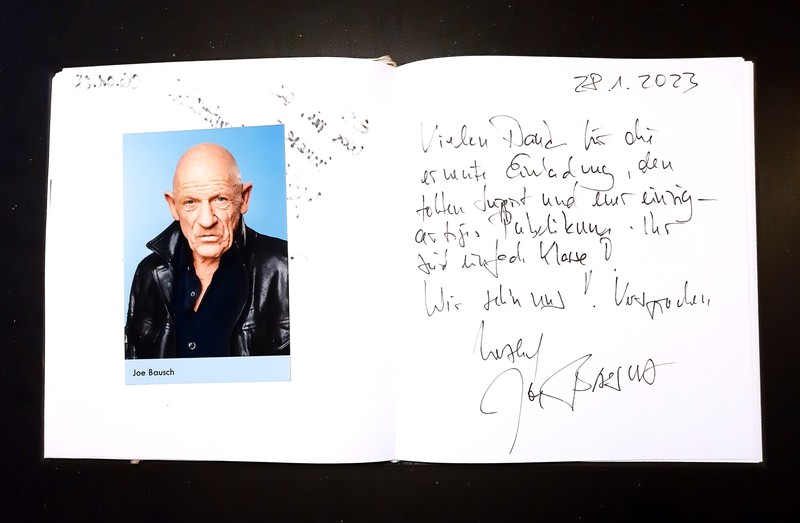 Joe Bausch
28.1.2023
Vielen Dank für die
erneute Einladung, den
tollen Support und euer einzig-
artiges Publikum. Ihr
seid einfach Klasse!
Wir sehn uns! Versprochen
Joe BAUSCH